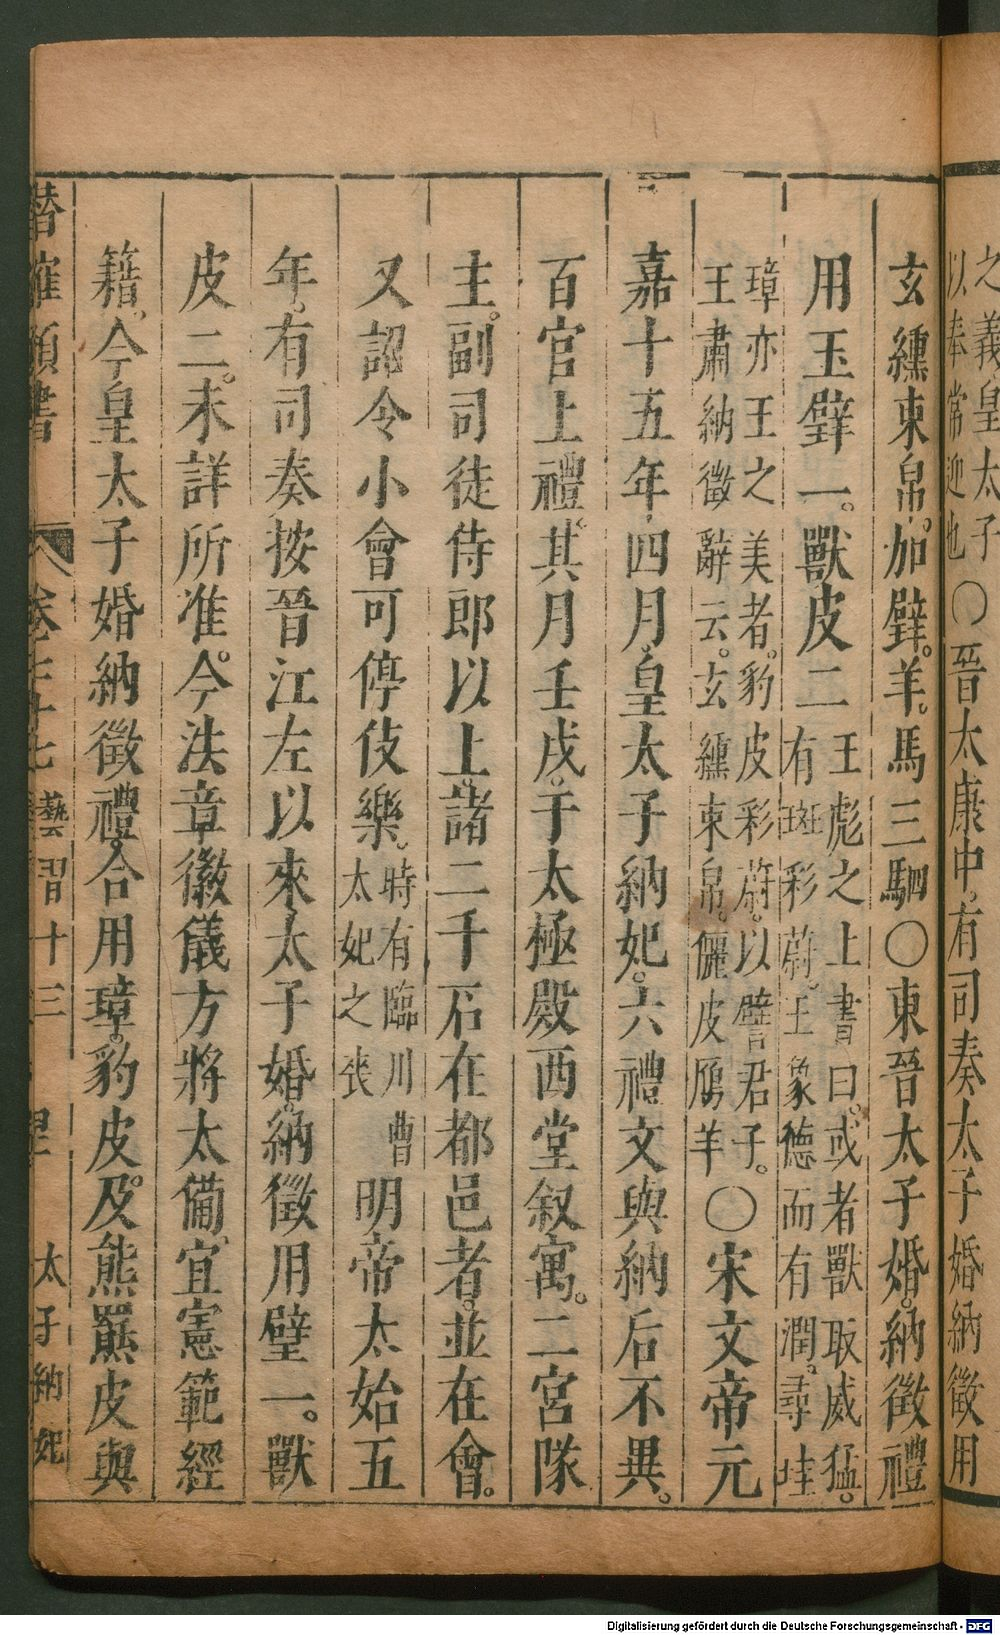 之義皇太子
以奉常迎也〇晉太康中。有司奏太子婚納徵用
玄纁束帛。加璧。羊。馬三駟〇東晉太子婚。納徵禮
用玉璧一。獸皮二王彪之上書曰。或者獸取威猛。
有斑彩蔚。王象德而有潤。尋珪
璋亦王之美者。豹皮彩蔚。以譬君子。
王肅納徵辭云。玄纁束帛。儷皮鴈羊〇宋文帝元
嘉十五年四月。皇太子納妃。六禮文與納后不異。
百官上禮。其月壬戌。于太極殿西堂叙寓。二宮隊
主。副司徒侍郎以上。諸二千石在都邑者。並在會。
又詔令小會可停伎樂。時有臨川曹
太妃之喪明帝太始五
年。有司奏按晉江左以來太子婚。納徵用璧一。獸
皮二。未詳所准。今法章徽儀方將太備。宜憲範經
籍。今皇太子婚納徵禮。合用璋。豹皮。及熊羆皮與
潛確類書 卷三十七 藝習十三 太子納妃
Digitalisierung gefördert durch die Deutsche Forschungsgemeinschaft - DFG